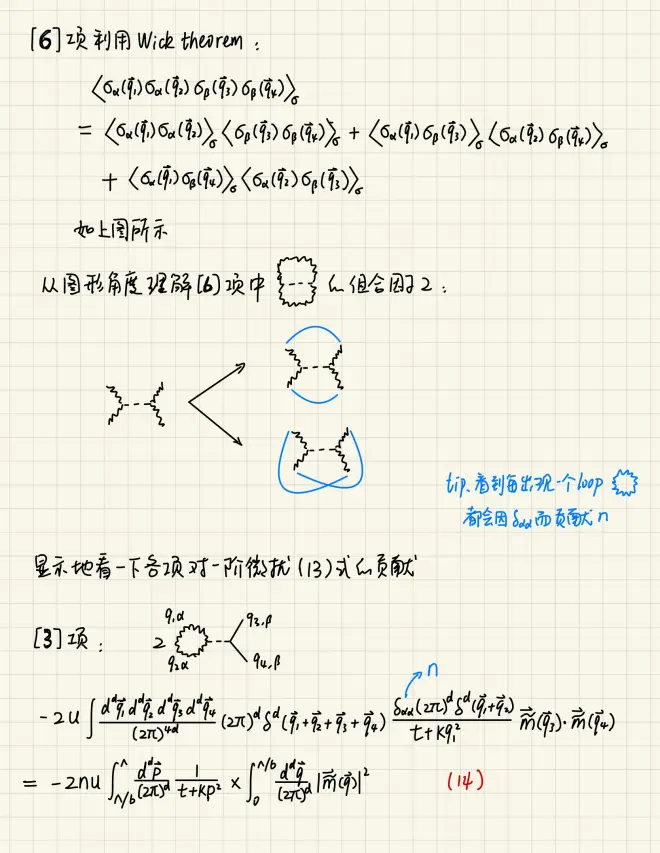 [6]项利用Wick theorem:
⟨σα(q⃗1)σα(q⃗2)σβ(q⃗3)σβ(q⃗4)⟩σ
= ⟨σα(q⃗1)σα(q⃗2)⟩σ⟨σβ(q⃗3)σβ(q⃗4)⟩σ + ⟨σα(q⃗1)σβ(q⃗3)⟩σ⟨σα(q⃗2)σβ(q⃗4)⟩σ
+ ⟨σα(q⃗1)σβ(q⃗4)⟩σ⟨σα(q⃗2)σβ(q⃗3)⟩σ
如上图所示
从图形角度理解[6]项中 的组合因子2:
tip. 看到每出现一个loop
都会因δαα而贡献n
显示地看一下各项对一阶微扰(13)式的贡献
[3]项: 2 q1,α q2,α q3,β q4,β
n
-2u∫ d^dq⃗1 d^dq⃗2 d^dq⃗3 d^dq⃗4/(2π)^4d (2π)^d δ^d(q⃗1+q⃗2+q⃗3+q⃗4) δαα(2π)^d δ^d(q⃗1+q⃗2)/(t+Kq1²) m⃗(q⃗3)·m⃗(q⃗4)
= -2nu∫_{Λ/b}^{Λ} d^dp⃗/(2π)^d 1/(t+Kp²) × ∫_0^{Λ/b} d^dq⃗/(2π)^d |m⃗(q⃗)|² (14)